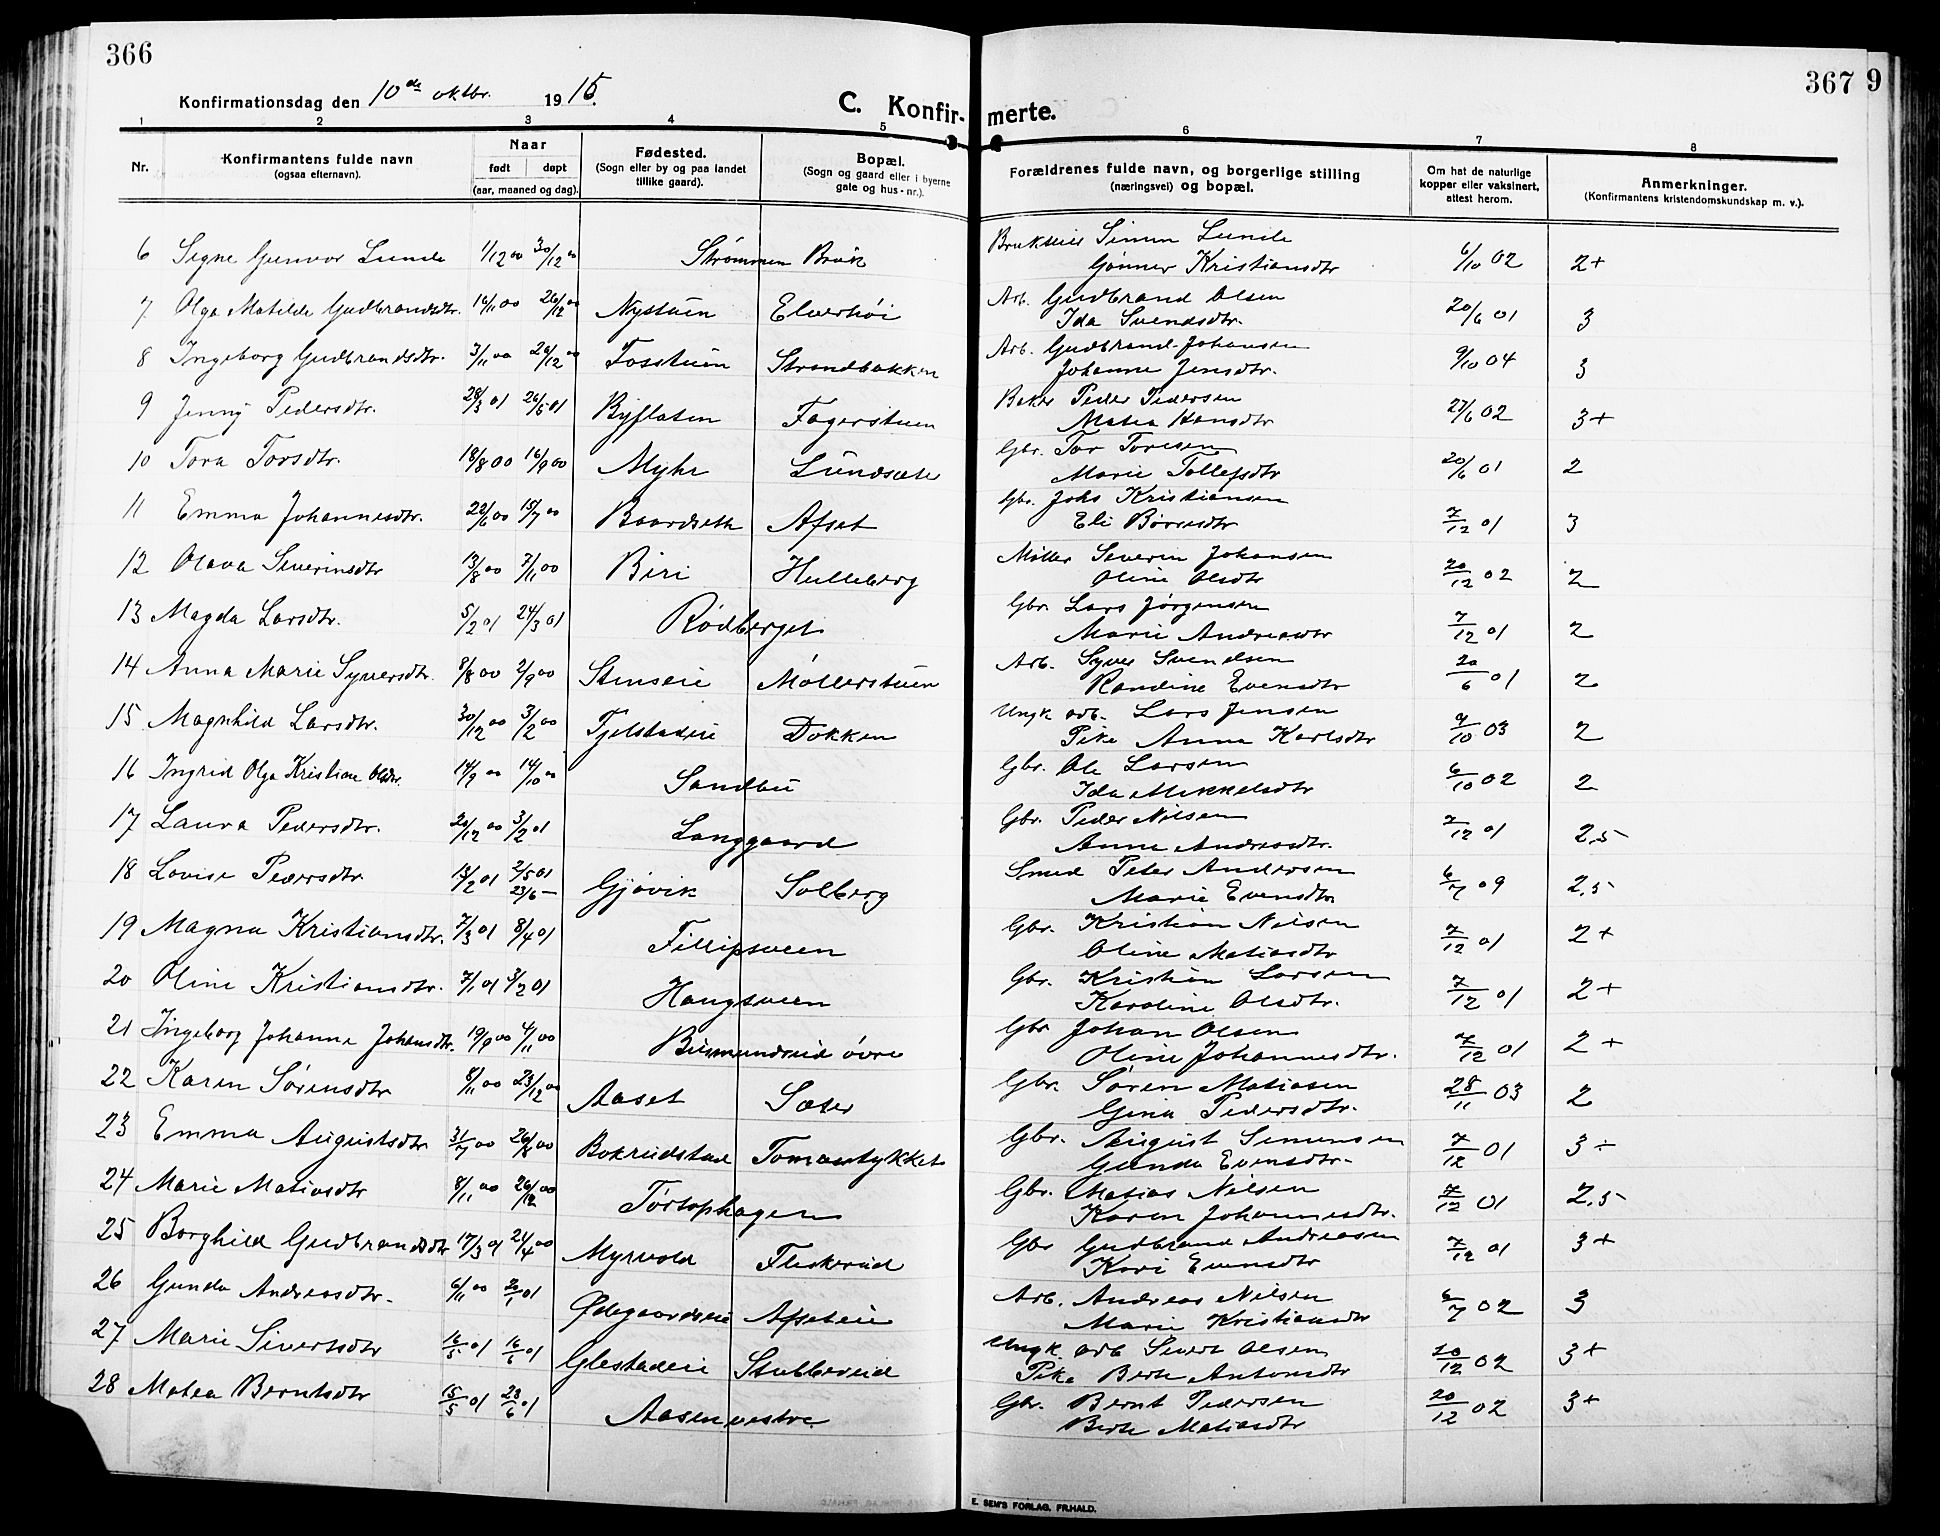 366
367 9
Konfirmationsdag den 10de oktbr. 1915.
C. Konfir- merte.
1 2 3 4 5 6 7 8
Nr.
Konfirmantens fulde navn
(ogsaa efternavn).
Naar
født døpt
(aar, maaned og dag).
Fødested.
(Sogn eller by og paa landet
tillike gaard).
Bopæl.
(Sogn og gaard eller i byerne
gate og hus-nr.).
Forældrenes fulde navn, og borgerlige stilling
(næringsvei) og bopæl.
Om hat de naturlige
kopper eller vaksinert,
attest herom.
Anmerkninger.
(Konfirmantens kristendomskundskap m. v.).
6 Signe Gunvor Lunde 1/12 00 30/12 00 Strømmen Bruk Brukseier Simen Lunde 6/10 02 2+
Gunner Kristiansdtr
7 Olga Matilde Gudbrandsdtr. 16/11 00 26/12 00 Nystuen Elverhøi Arb. Gudbrand Olsen 20/6 01 3
Ida Svendsdtr.
8 Ingeborg Gudbrandsdtr. 3/11 00 26/12 00 Fosstuen Strandbakken Arb. Gudbrand Johansen 9/10 04 3
Johanne Jensdtr.
9 Jenny Pedersdtr. 28/3 01 26/5 01 Byflaten Fagerstuen Baker Peder Pedersen 27/6 02 3+
Matea Hansdtr
10 Tora Torsdtr. 18/8 00 16/9 00 Myhr Lundsæte Gbr. Tor Toresen 20/6 01 2
Marie Tollefsdtr
11 Emma Johannesdtr. 22/6 00 15/7 00 Baardseth Afset Gbr. Johs Kristiansen 7/12 01 3
Eli Børresdtr
12 Olava Severinsdtr 13/8 00 7/11 00 Biri Hulleberg Møller Severin Johansen 20/12 02 2
Oline Olsdtr
13 Magda Larsdtr. 5/2 01 24/3 01 Rødberget Gbr. Lars Jørgensen 7/12 01 2
Marie Andreasdtr
14 Anna Marie Syversdtr. 8/8 00 2/9 00 Stenseie Møllerstuen Arb. Syver Svendsen 20/6 01 2
Randine Evensdtr
15 Magnhild Larsdtr. 30/12 00 3/2 00 Fjelstadeie Dokken Ungk. arb. Lars Jensen 9/10 03 2
Pike Anna Karlsdtr
16 Ingrid Olga Kristine Olsdtr. 14/9 00 14/10 00 Sandbu Gbr. Ole Larsen 6/10 02 2
Ida Mikkelsdtr
17 Laura Pedersdtr. 20/12 00 3/2 01 Langgaard Gbr. Peder Nilsen 7/12 01 2,5
Anne Andreasdtr.
18 Lovise Pedersdtr. 15/2 01 2/5 01 Gjøvik Solberg Smed Peter Andersen 6/7 09 2,5
23/6 — Marie Evensdtr
19 Magna Kristiansdtr. 7/3 01 8/4 01 Fillipsveen Gbr. Kristian Nilsen 7/12 01 2+
Oline Matiasdtr
20 Oline Kristiansdtr. 7/1 01 3/2 01 Haugsveen Gbr. Kristian Larsen 7/12 01 2+
Karoline Olsdtr.
21 Ingeborg Johanne Johansdtr. 19/9 00 4/11 00 Bismundseid øvre Gbr Johan Olsen 7/12 01 2+
Oline Johannesdtr.
22 Karen Sørensdtr 8/11 00 23/12 00 Aaset Sæter Gbr. Søren Matiasen 28/11 03 2
Gina Pedersdtr.
23 Emma Augustsdtr 31/7 00 26/8 00 Bokrudstad Tomantykket Gbr. August Simensen 7/12 01 3÷
Gunda Evensdtr.
24 Marie Matiasdtr 8/11 00 26/12 00 Tørtophagen Gbr. Matias Nilsen 7/12 01 2,5
Karen Johannesdtr.
25 Borghild Gudbrandsdtr 17/3 01 21/4 00 Myrvold Fliskerud Gbr Gudbrand Andreasen 7/12 01 3+
Kari Evensdtr
26 Gunda Andreasdtr. 6/11 00 20/1 01 Ødegaardseie Afseteie Arb. Andreas Nilsen 6/7 02 3
Marie Kristiansdtr
27 Marie Sivertsdtr 16/5 01 16/6 01 Glestadeie Stubberud Ungk. arb Sivert Olsen 20/12 02 3+
Pike Berte Antonsdtr
28 Matea Berntsdtr 15/5 01 23/6 01 Aasen vestre Gbr. Bernt Pedersen 20/12 02 3+
Berte Matiasdtr
E. SEM'S FORLAG, FR.HALD.